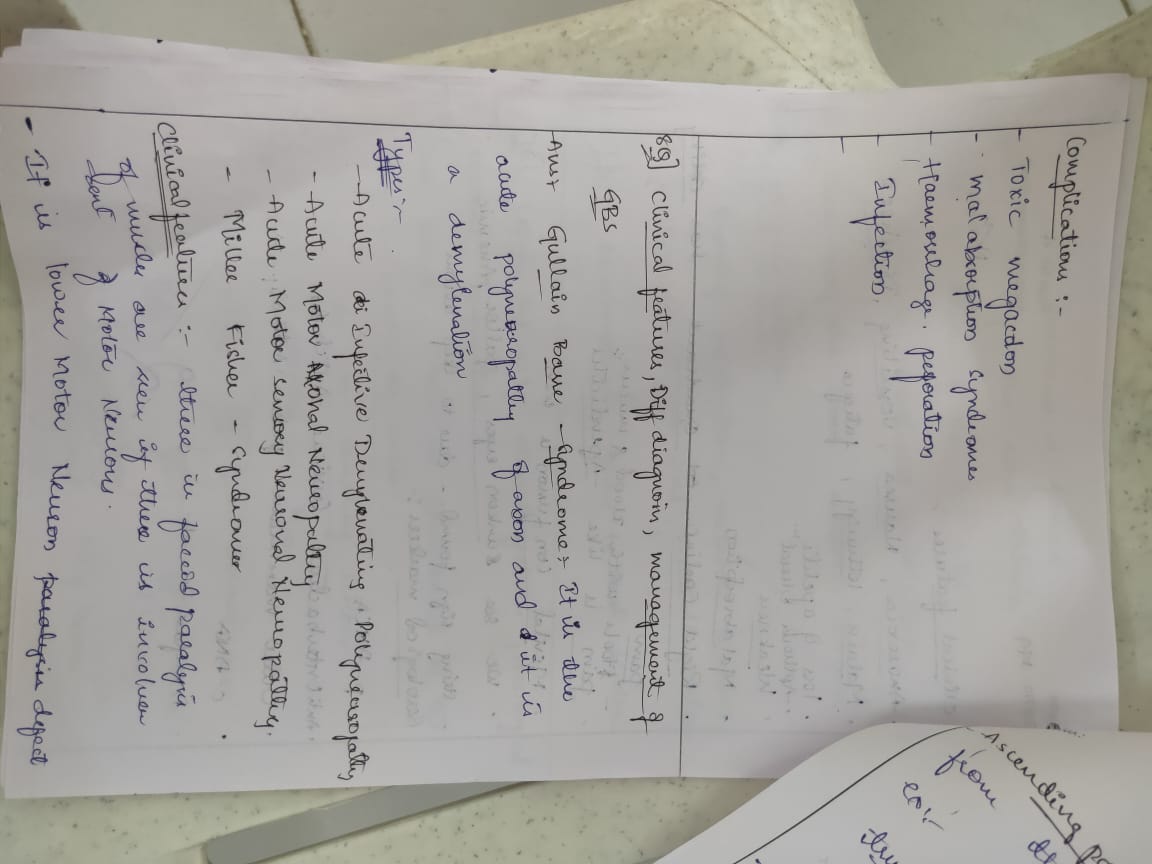 Complications :-
- Toxic megacolon
- mal absorption syndromes
- Haemorrhage, perforation
- Infection
-
8Q] Clinical features, Diff diagnosis, management of
GBS
Ans> Gullain Barre -Syndrome> It is the
acute polyneuropathy of axon and it is
a demylenation
Types :-
- Acute Infective Demylenating Polyneuropathy
- Acute Motor Axonal Neuropathy
- Acute Motor sensory Neuronal Neuropathy.
- Miller Fisher - Syndrome
Clinical features :- there is flaccid paralysis
of muscles are seen if there is involven
of Motor Neurons.
- It is lower Motor Neuron paralysis defect
- Ascending
from